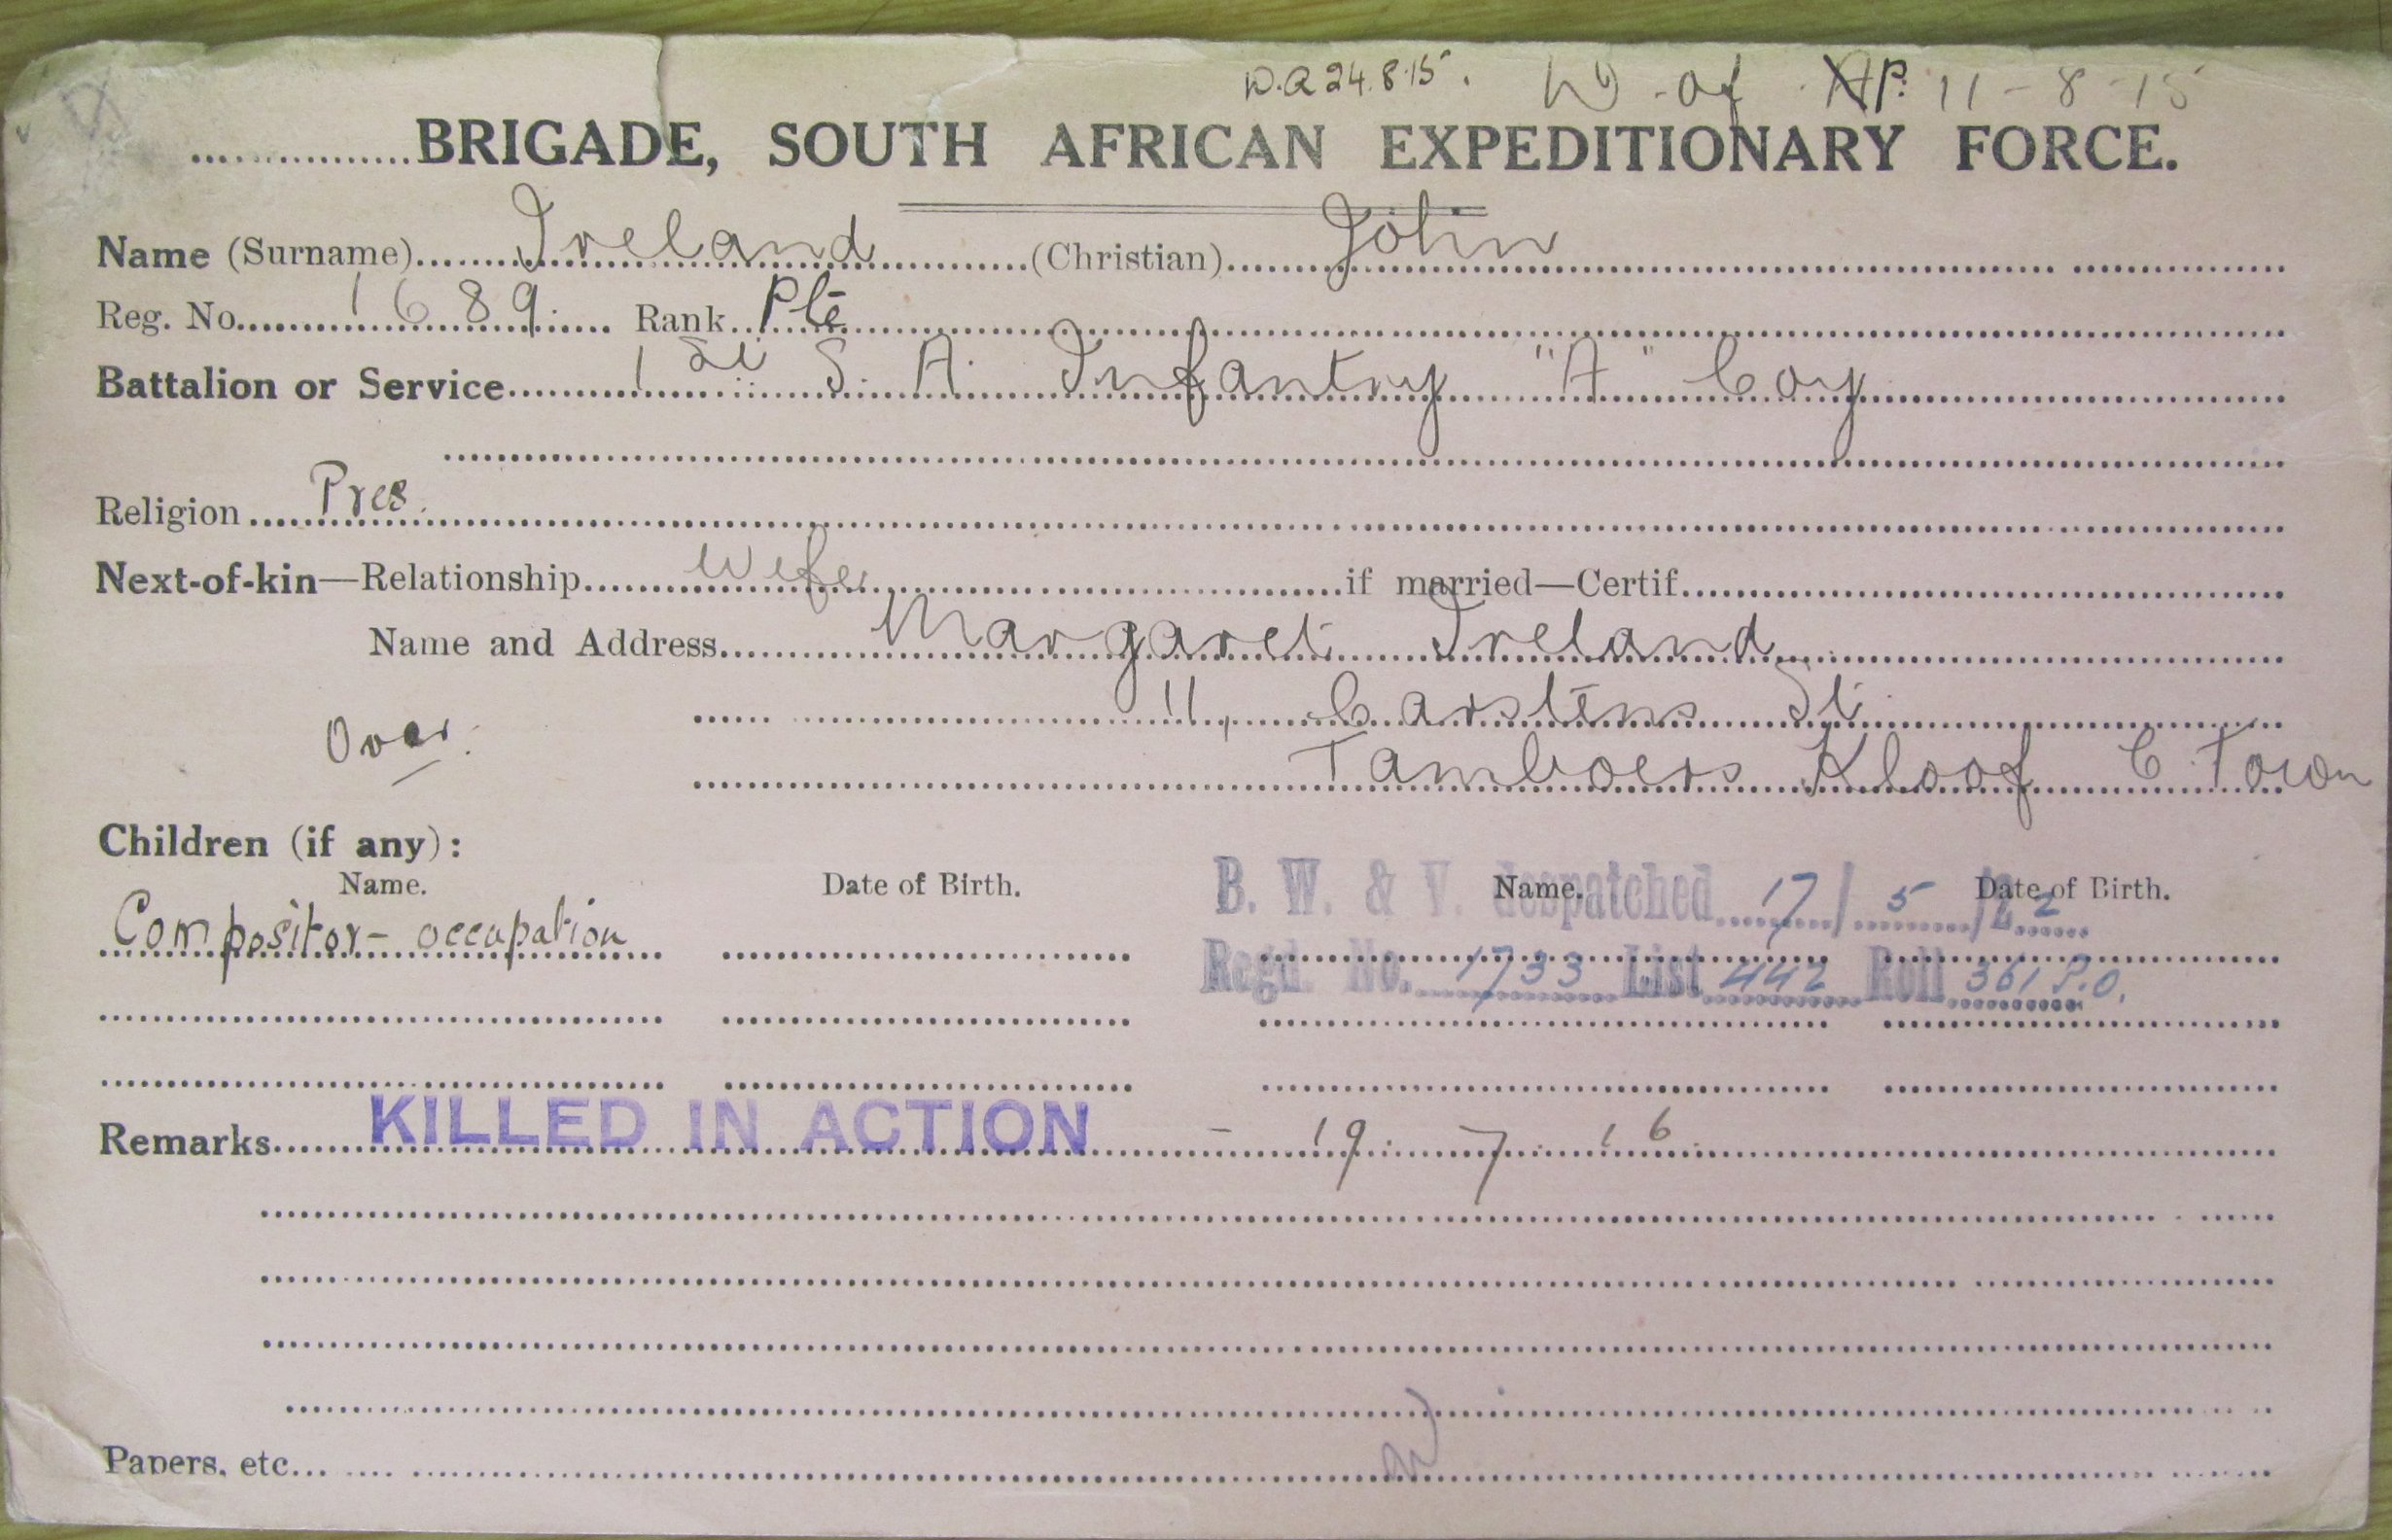 D.A 24.8.15. W of AP. 11-8-15
BRIGADE, SOUTH AFRICAN EXPEDITIONARY FORCE.
Name (Surname) Ireland (Christian) John
Reg. No. 1689. Rank Pte
Battalion or Service 1st S. A. Infantry "A" Coy
Religion Pres.
Next-of-kin—Relationship Wife if married—Certif.
Name and Address Margaret Ireland
11, Carstens St.
Over. Tamboers Kloof C. Town
Children (if any):
Name. Date of Birth. Name. Date of Birth.
B. W. & V. despatched 17/5/22
Compositor - occupation
Regd. No. 1733 List 442 Roll 361 P.O.
Remarks KILLED IN ACTION - 19.7.16.
Papers, etc.